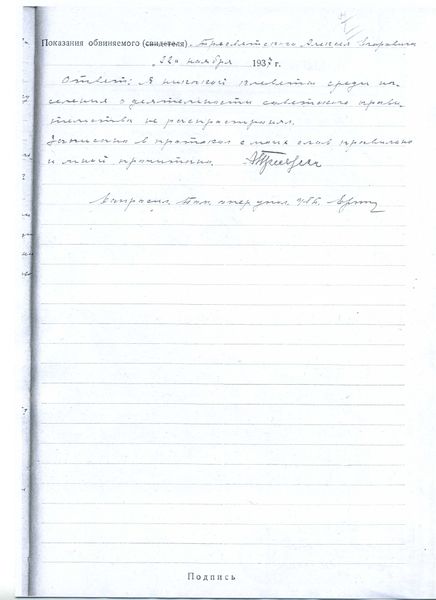 Показания обвиняемого (свидетеля) Просветского Алексея Егоровича
"12" ноября 1937 г.
Ответ: Я никакой клеветы среди на-
селения о деятельности советского прави-
тельства не распространял.
Записано в протокол с моих слов правильно
и мной прочитано.
Допросил: Пом. опер упол.
Подпись